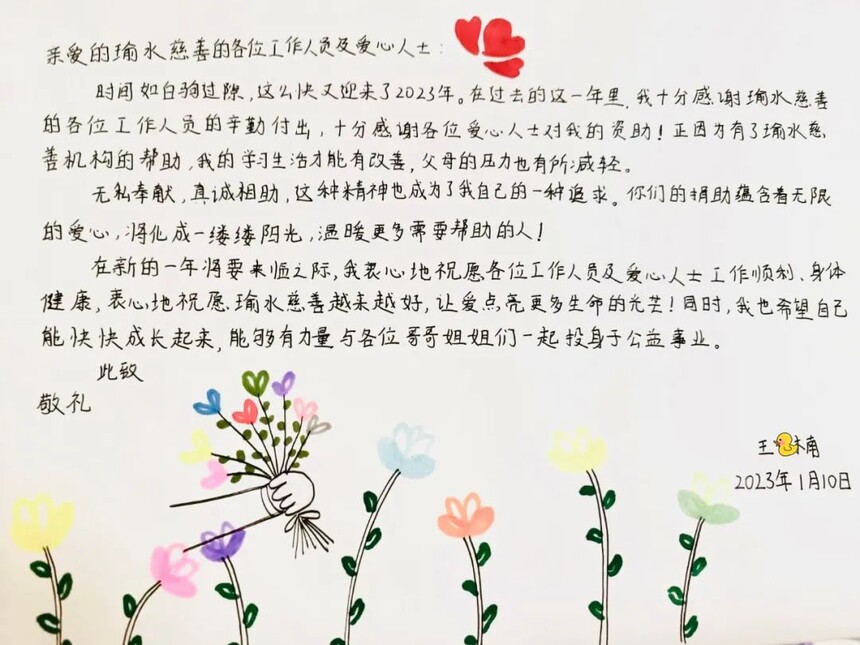 亲爱的瑜水慈善的各位工作人员及爱心人士：
时间如白驹过隙，这么快又迎来了2023年。在过去的这一年里，我十分感谢瑜水慈善
的各位工作人员的辛勤付出，十分感谢各位爱心人士对我的资助！正因为有了瑜水慈
善机构的帮助，我的学习生活才能有改善，父母的压力也有所减轻。
无私奉献，真诚相助，这种精神也成为了我自己的一种追求。你们的捐助蕴含着无限
的爱心，将化成一缕缕阳光，温暖更多需要帮助的人！
在新的一年将要来临之际，我衷心地祝愿各位工作人员及爱心人士工作顺利、身体
健康，衷心地祝愿瑜水慈善越来越好，让爱点亮更多生命的光芒！同时，我也希望自己
能快快成长起来，能够有力量与各位哥哥姐姐们一起投身于公益事业。
此致
敬礼
王 楠
2023年1月10日